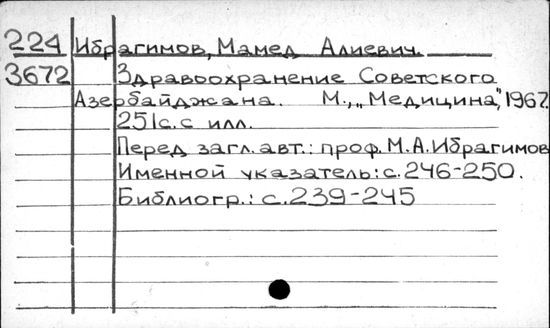 224 Ибрагимов, Мамед Алиевич.
3672 Здравоохранение Советского
Азербайджана. М., „Медицина", 1967.
251с. с илл.
Перед загл. авт.: проф. М.А. Ибрагимов
Именной указатель: с. 246-250.
Библиогр.: с. 239-245